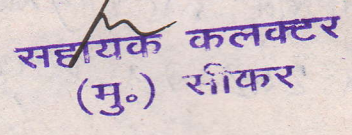 सहायक कलक्टर
(मु०) सीकर